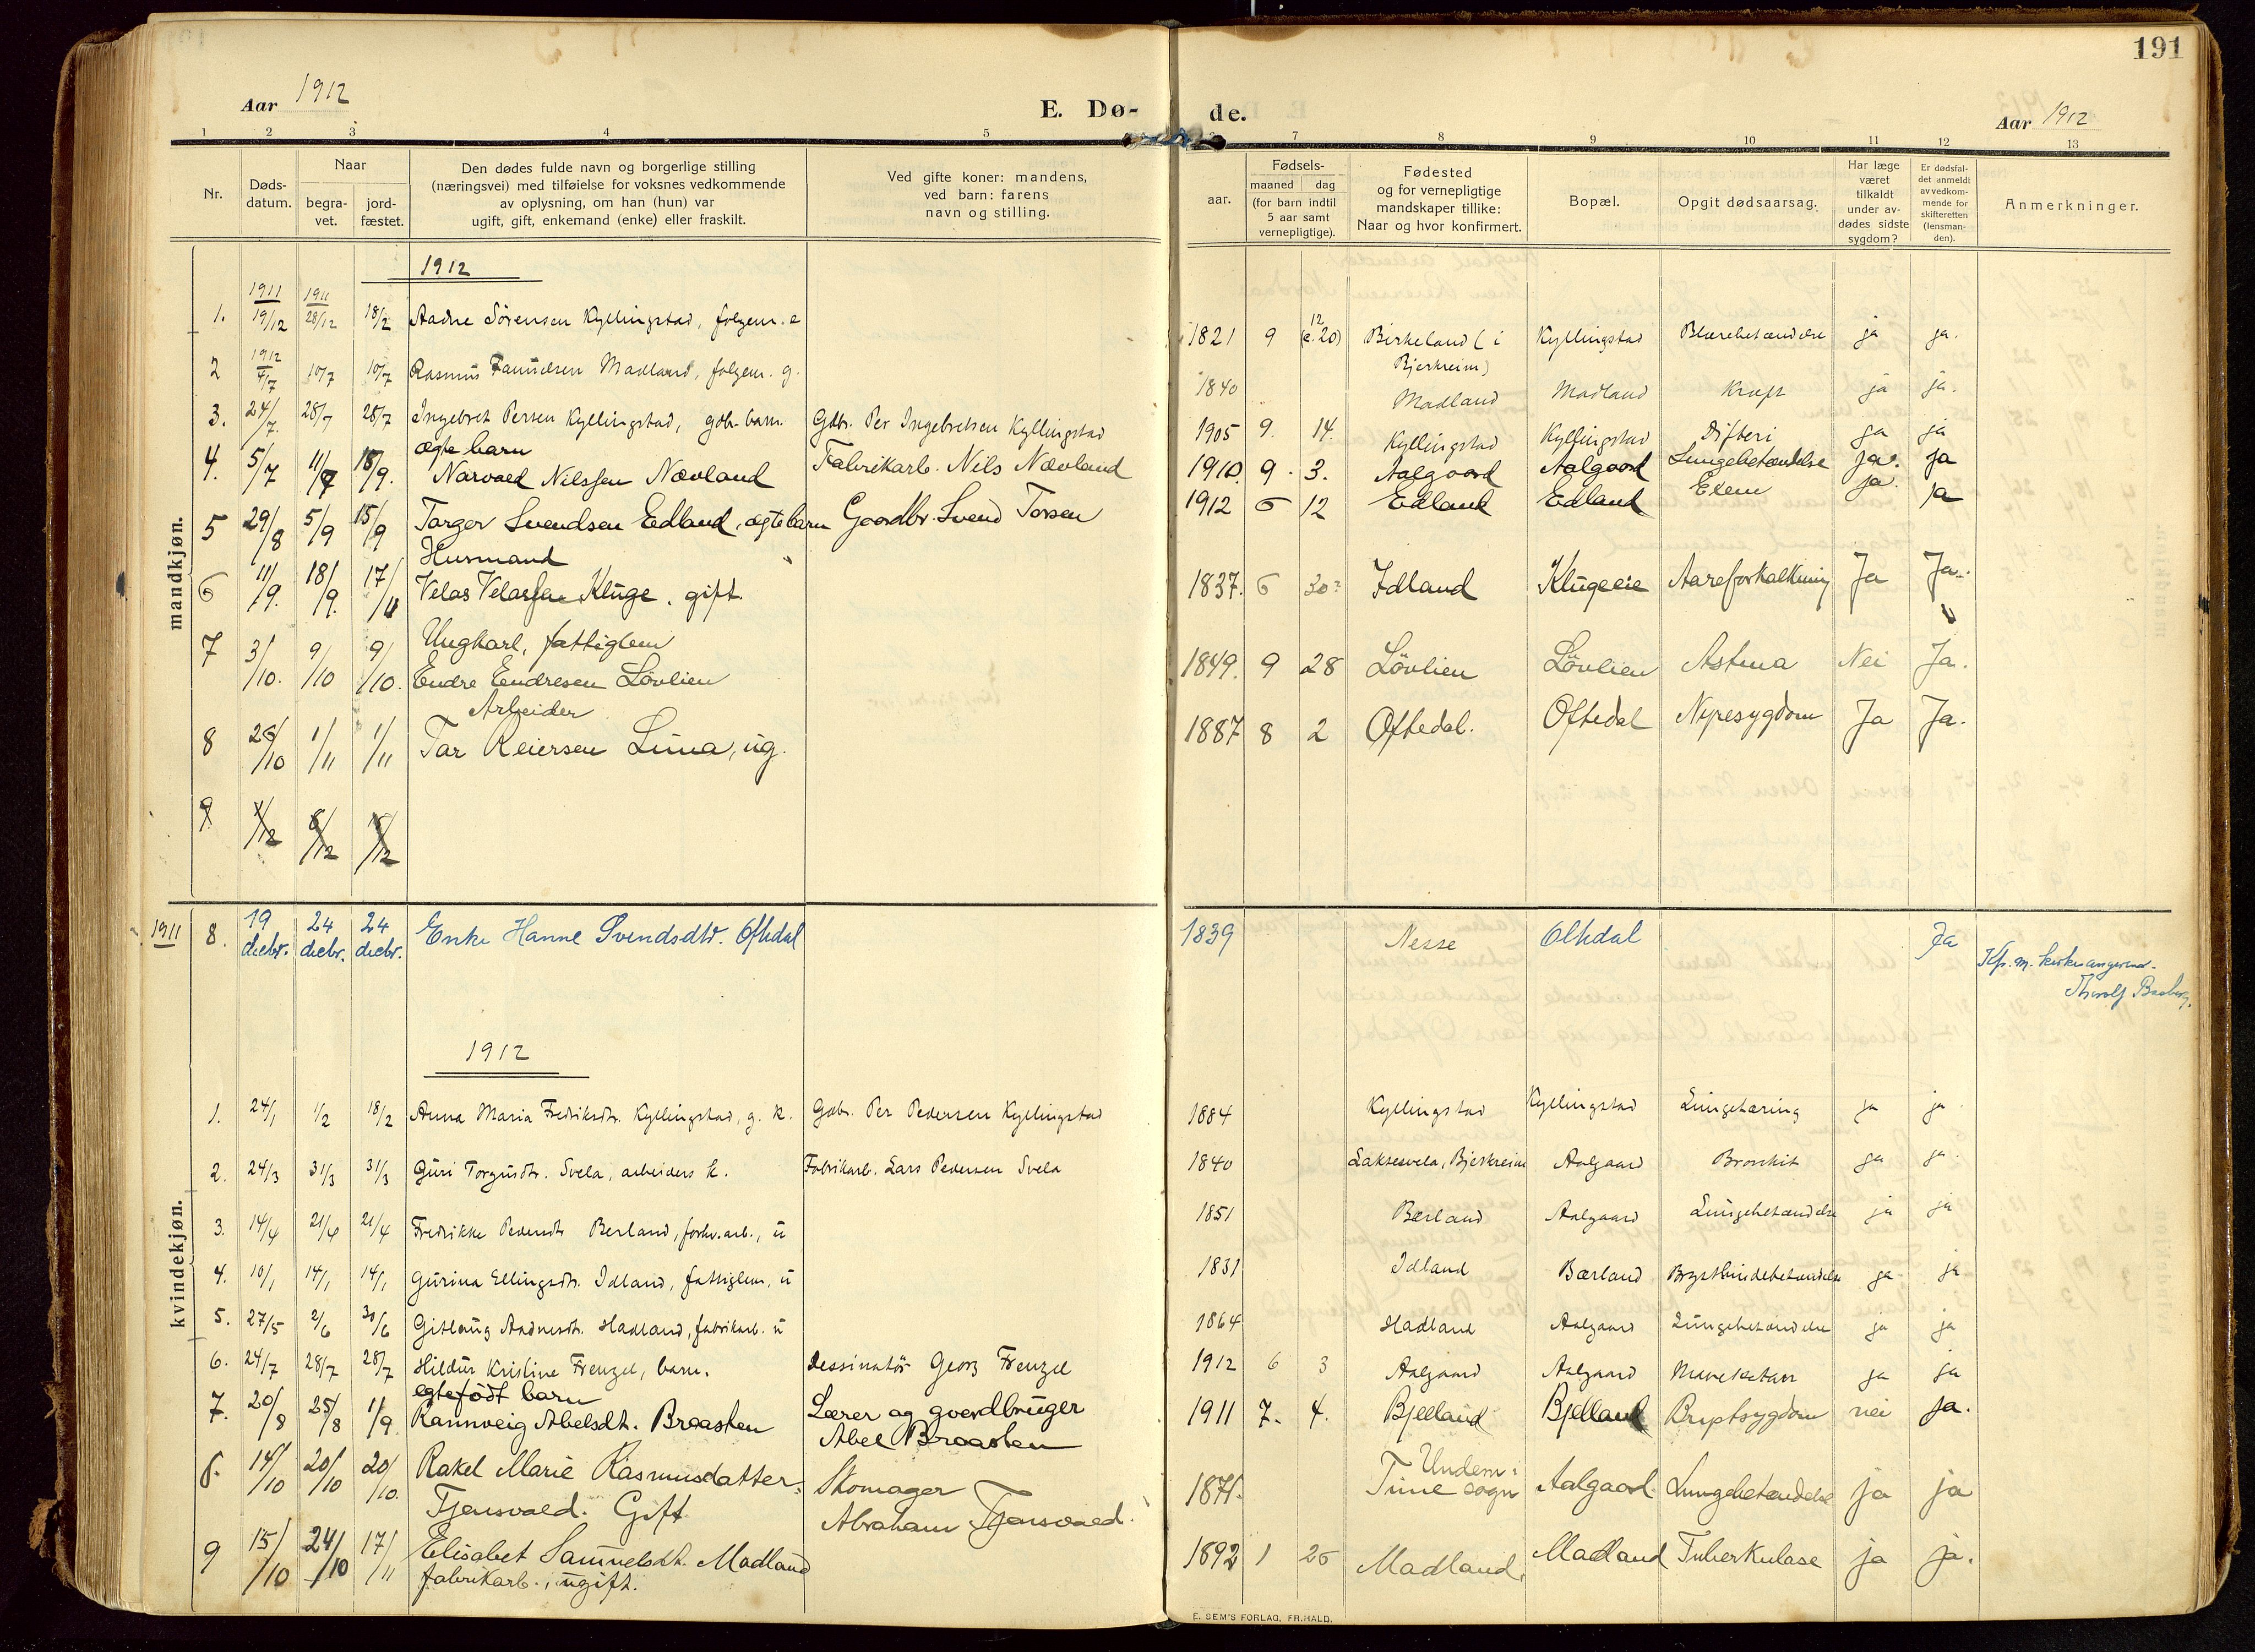 191
Aar 1912
E. Dø-
de.
Aar 1912
1 2 3 4 5 7 8 9 10 11 12 13
Nr.
Døds-
datum.
Naar
begra-
vet.
jord-
fæstet.
Den dødes fulde navn og borgerlige stilling
(næringsvei) med tilføielse for voksnes vedkommende
av oplysning, om han (hun) var
ugift, gift, enkemand (enke) eller fraskilt.
Ved gifte koner: mandens,
ved barn: farens
navn og stilling.
Fødsels-
aar.
maaned dag
(for barn indtil
5 aar samt
vernepligtige).
Fødested
og for vernepligtige
mandskaper tillike:
Naar og hvor konfirmert.
Bopæl.
Opgit dødsaarsag.
Har læge
været
tilkaldt
under av-
dødes sidste
sygdom?
Er dødsfal-
det anmeldt
av vedkom-
mende for
skifteretten
(lensman-
den).
Anmerkninger.
mandkjøn.
1912
1911 1911
1. 19/12 28/12 18/2 Aadne Sörensen Kyllingstad, folgem. e 1821 9 12 (e. 20) Birkeland (i Kyllingstad Blærebetændelse ja ja.
Bjerkreim)
1912
2 4/7 10/7 10/7 Rasmus Samuelsen Madland, folgem. g. 1840 Madland Madland Kræft ja ja.
3. 24/7. 28/7 28/7 Ingebret Persen Kyllingstad, gbr. barn. Gdbr. Per Ingebretsen Kyllingstad 1905 9. 14. Kyllingstad Kyllingstad Difteri ja ja
ægte barn
4. 5/7 11/7 18/9. Narvald Nilssen Nævland Fabrikarb. Nils Nævland 1910. 9. 3. Aalgaard Aalgaard Lungebetændelse ja. ja
5 29/8 5/9 15/9 Torger Svendsen Edland, ægte barn Gaardbr. Svend Torsen 1912 6 12 Edland Edland Exem ja. ja
Husmand
6 11/9. 18/9. 17/11 Velas Velassen Kluge, gift. 1837. 6 30? Idland Klugeeie Aareforkalkning Ja Ja.
Ungkarl, fattiglem
7 3/10. 9/10 9/10. Endre Endresen Lövlien 1849. 9 28 Lövlien Lövlien Astma Nei Ja.
Arbeider
8 26/10 1/11 1/11 Tar Reiersen Lima, ug. 1887 8 2 Oftedal. Oftedal Nyresygdom Ja Ja.
9
kvindekjøn.
1911 8. 19 decbr. 24 decbr. 24 decbr. Enke Hanne Svendsdtr. Oftedal 1839 Nesse Oltedal Ja
1912
1. 24/1 1/2 18/2 Anna Maria Fredriksdtr. Kyllingstad, g. k. Gdbr. Per Pedersen Kyllingstad 1884 Kyllingstad Kyllingstad Lungetæring ja ja
2. 24/3 31/3 31/3 Guri Torgusdtr. Svela, arbeiders k. Fabrikarb. Lars Pedersen Svela 1840 Laksesvela, Bjerkreim Aalgaard Bronkit ja ja.
3. 14/4 21/4 21/4 Fredrikke Pedersdtr Berland, forhv. arb., u 1851 Bærland Aalgaard Lungebetændelse ja ja
4. 10/1 14/1 14/1 Gurina Ellingsdtr. Idland, fattiglem, u 1831 Idland Bærland Brysthindebetændelse ja ja
5. 27/5 2/6 30/6 Gitlaug Aadnesdtr. Hadland, fabrikarb. u 1864 Hadland Aalgaard Lungebetændelse ja ja
6. 24/7 28/7 28/7 Hildur Kristine Frenzel, barn. Dessinatör Georg Frenzel 1912 6 3 Aalgaard Aalgaard Mavekatarr ja ja
egtefödt barn
7. 20/8 25/8 1/9. Rannveig Abelsdt. Braasten Lærer og gaardbruger 1911 7. 4. Bjelland Bjelland Brystsygdom nei ja.
Abel Braasten
8. 14/10 20/10 20/10. Rakel Marie Rasmusdatter Skomager Undem i Aalgaard. Lungebetændelse ja ja
Tjensvold. Gift Abraham Tjensvold. 1871. Time sogn
9 15/10 24/10 17/11 Elisabet Samuelsdt. Madland 1892 1 26 Madland, Madland Tuberkulose ja ja.
fabrikarb., ugift.
E. SEM'S FORLAG, FR.HALD.